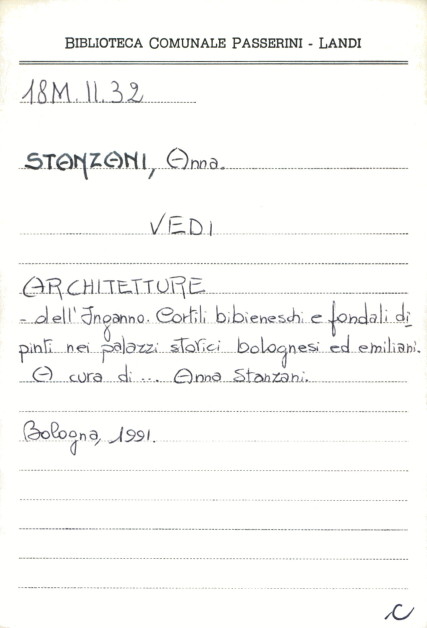 BIBLIOTECA COMUNALE PASSERINI - LANDI
18M.II.32
STANZANI, Anna.
VEDI
ARCHITETTURE
- dell'Inganno. Cortili bibieneschi e fondali di
pinti nei palazzi storici bolognesi ed emiliani.
A cura di ... Anna Stanzani.
Bologna, 1991.
C